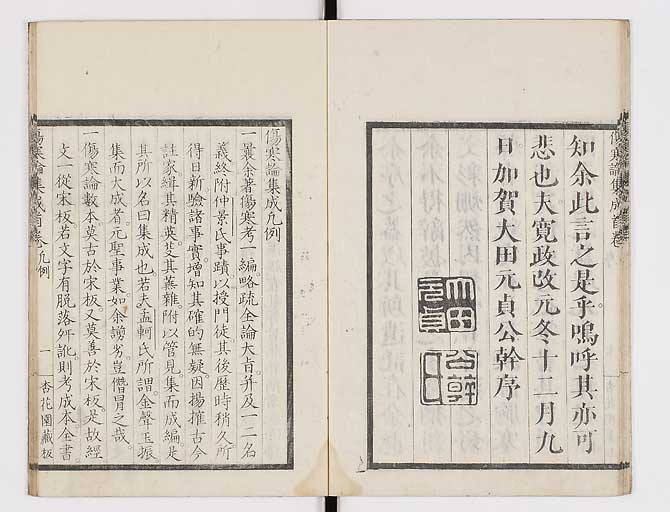 知余此言之是乎嗚呼其亦可
悲也夫寬政改元冬十二月九
日加賀大田元貞公幹序
大田
元貞
公幹
氏
傷寒論集成首卷
傷寒論集成凡例
一曩余著傷寒考一編略疏全論大旨并及一二名
義終附仲景氏事蹟以授門徒其後歷時稍久所
得日新驗諸事實增知其確的無疑因揚搉古今
註家緝其精英芟其蕪雜附以管見集而成編是
其所以名曰集成也若夫孟軻氏所謂金聲玉振
集而大成者元聖事業如余謭劣豈僭冒之哉
一傷寒論數本莫古於宋板又莫善於宋板是故經
文一從宋板若文字有脫落舛訛則考成本全書
傷寒論集成首卷 凡例
一
杏花園藏板